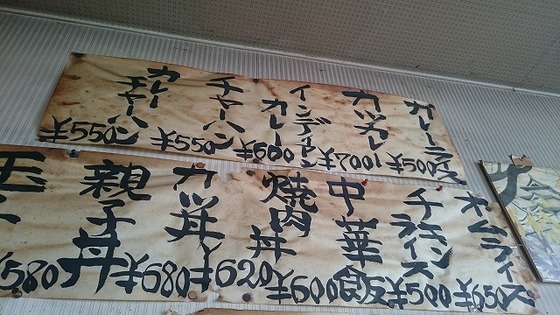 カレーライス ¥500
カツカレー ¥700
インディアンカレー ¥600
チャーハン ¥550
カレーチャーハン ¥550
オムライス ¥650
チキンライス ¥500
中華飯 ¥600
焼肉丼
カツ丼 ¥620
親子丼 ¥680
玉子 580